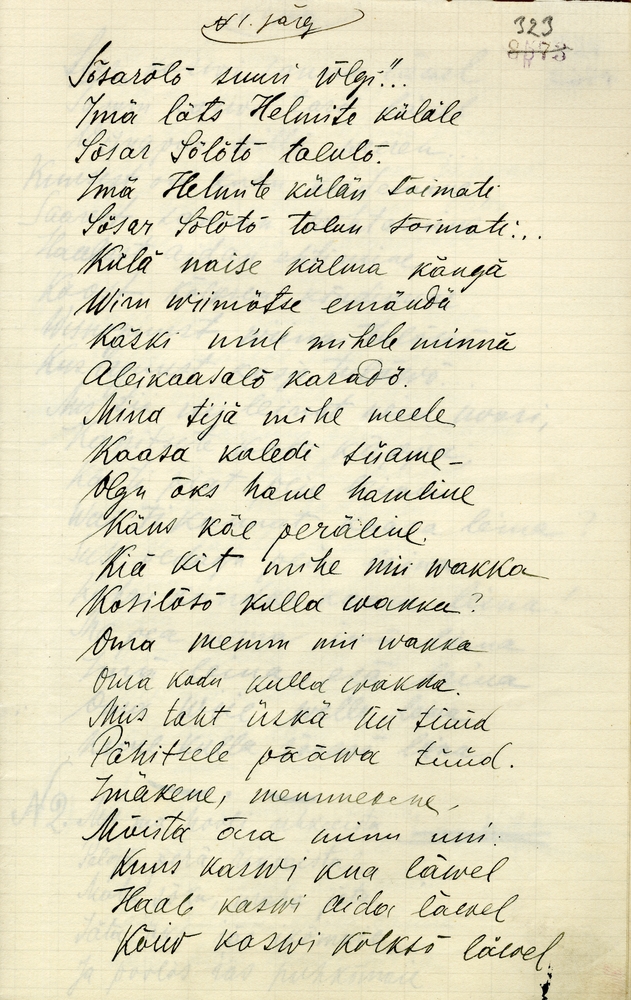 N 1. järg
323
8573
Sõsarõlõ suuri võlgi"...
Imä läts Helmite küläle
Sõsar Sõlõtõ talulõ.
Imä Helmite külän toimati
Sõsar Sõlõtõ talun toimati...
Külä naise kälma kängä
Wiru wiimätse emändä
Käski minl mihele minnä
Aleikaasalõ karadõ.
Mina tijä mihe meele
Kaasa kaledi süame –
Olgu õks hame hamline
Käus käe peräline.
Kiä kit mihe mii wakka
Kosilõsõ kulla wakka?
Oma memm mii wakka
Oma kodu kulla wakka.
Miis taht üskä üü tüüd
Pähitsele pääwa tüüd.
Imäkene, memmekene,
Mõista ära minu uni:
Kuus kaswi kua läwel
Haab kaswi aida läwel
Kõiw kaswi kõlksõ läwel